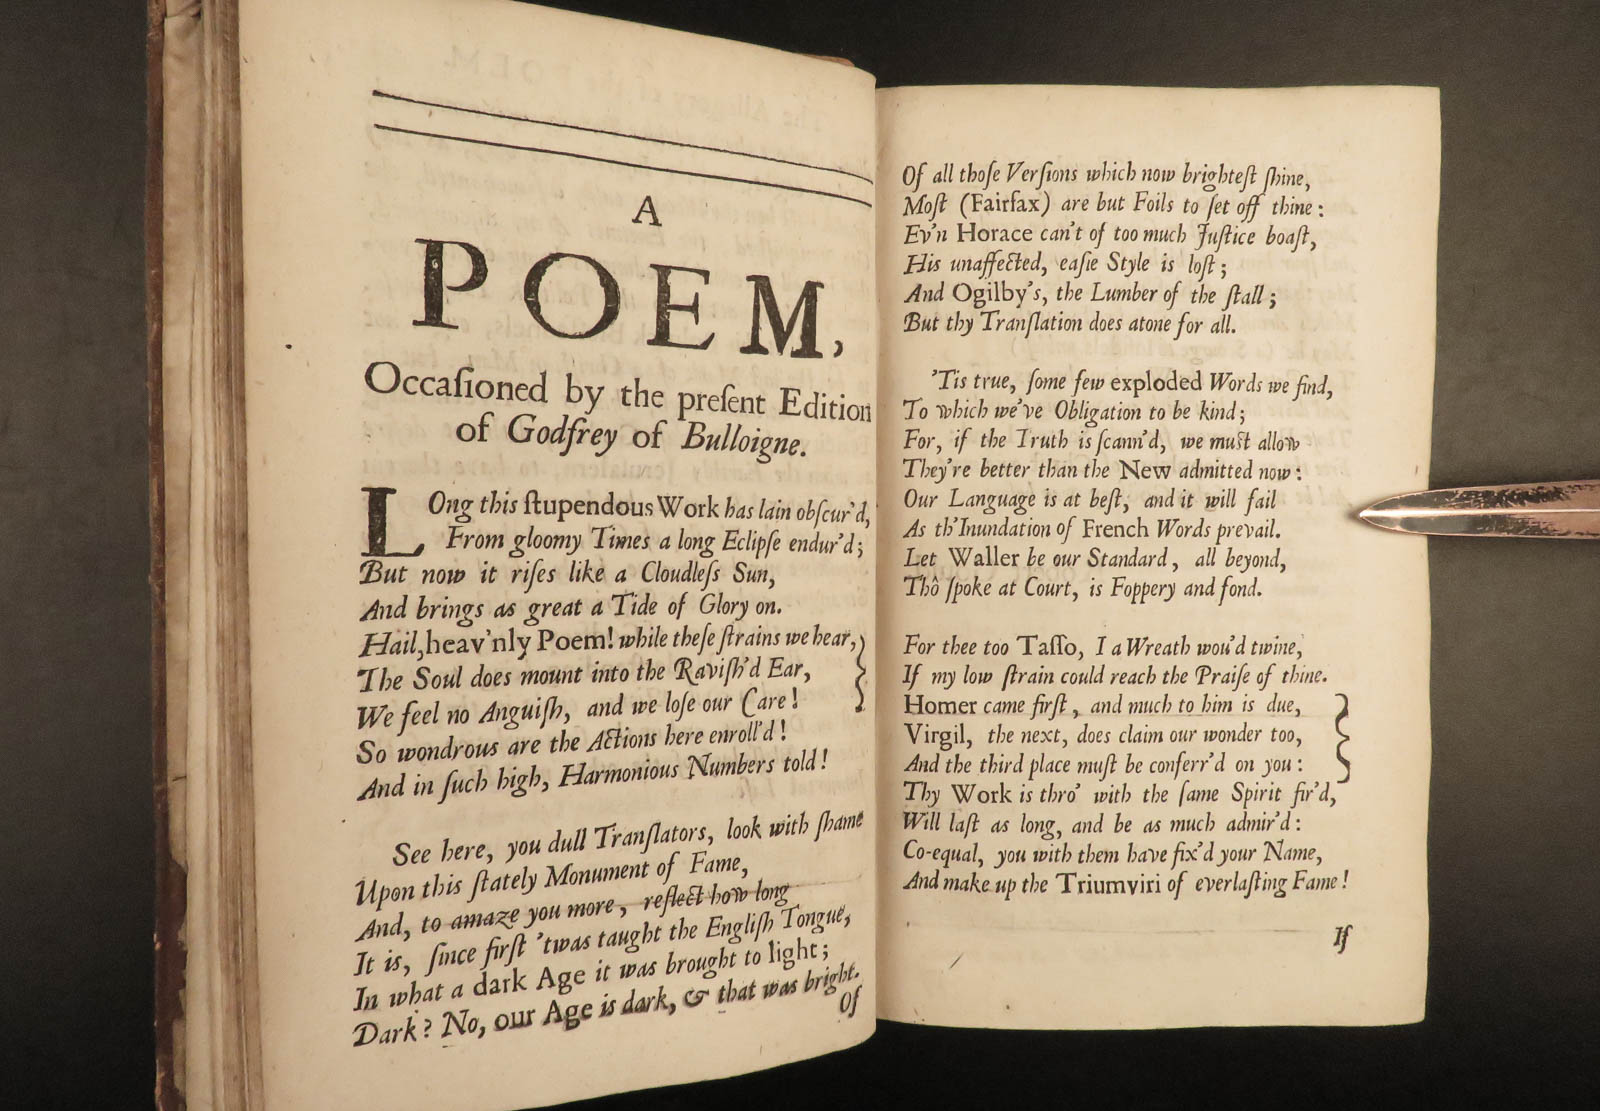 A
POEM,
Occaſioned by the preſent Edition
of Godfrey of Bulloigne.
LOng this ſtupendous Work has lain obſcur'd,
From gloomy Times a long Eclipſe endur'd;
But now it riſes like a Cloudleſs Sun,
And brings as great a Tide of Glory on.
Hail, heav'nly Poem! while theſe ſtrains we hear,
The Soul does mount into the Raviſh'd Ear,
We feel no Anguiſh, and we loſe our Care!
So wondrous are the Actions here enroll'd!
And in ſuch high, Harmonious Numbers told!
See here, you dull Tranſlators, look with ſhame
Upon this ſtately Monument of Fame,
And, to amaze you more, reflect how long
It is, ſince firſt 'twas taught the Engliſh Tongue,
In what a dark Age it was brought to light;
Dark? No, our Age is dark, & that was bright.
Of
Of all thoſe Verſions which now brighteſt ſhine,
Moſt (Fairfax) are but Foils to ſet off thine:
Ev'n Horace can't of too much Juſtice boaſt,
His unaffected, eaſie Style is loſt;
And Ogilby's, the Lumber of the ſtall;
But thy Tranſlation does atone for all.
'Tis true, ſome few exploded Words we find,
To which we've Obligation to be kind;
For, if the Truth is ſcann'd, we muſt allow
They're better than the New admitted now:
Our Language is at beſt, and it will fail
As th' Inundation of French Words prevail.
Let Waller be our Standard, all beyond,
Thô ſpoke at Court, is Foppery and fond.
For thee too Taſſo, I a Wreath wou'd twine,
If my low ſtrain could reach the Praiſe of thine.
Homer came firſt, and much to him is due,
Virgil, the next, does claim our wonder too,
And the third place muſt be conferr'd on you:
Thy Work is thro' with the ſame Spirit fir'd,
Will laſt as long, and be as much admir'd:
Co-equal, you with them have fix'd your Name,
And make up the Triumviri of everlaſting Fame!
If